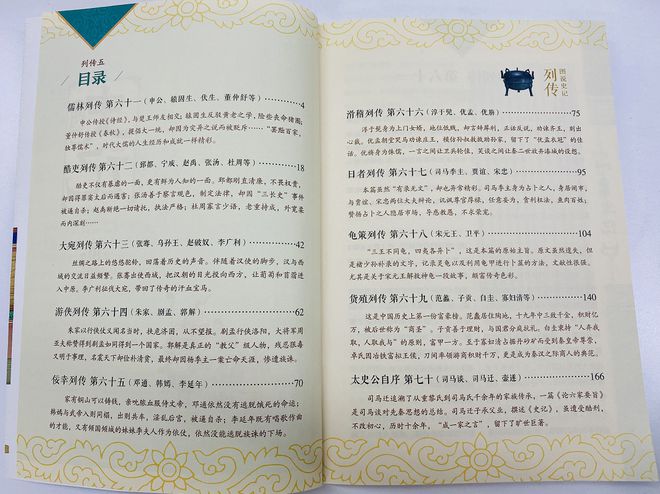 列传五
目录
儒林列传 第六十一（申公、辕固生、伏生、董仲舒等）……4
申公传授《诗经》，与楚王师友相交；辕固生反驳黄老之学，险些丧命猪圈；
董仲舒传授《春秋》，提倡大一统，却因为灾异之说而被贬斥……“罢黜百家，
独尊儒术”，时代大儒的人生经历和成就一样精彩。
酷吏列传 第六十二（郅都、宁成、赵禹、张汤、杜周等）……18
酷吏不仅有暴虐的一面，更有鲜为人知的一面。郅都刚直清廉，不畏权贵，
却因得罪窦太后而遇害；张汤善于察言观色，制定法律，却因“三长史”事件
被逼自杀；赵禹断绝一切请托，执法严格；杜周寡言少语，老重持成，外宽柔
而内深刻……
大宛列传 第六十三（张骞、乌孙王、赵破奴、李广利）……42
丝绸之路上的悠悠驼铃，回荡着历史的声音。伴随着汉使的脚步，汉与西
域的交流日益频繁。张骞出使西域，把汉朝的目光投向西方，让葡萄和苜蓿进
入中原。李广利征伐大宛，带回了传奇的汗血宝马。
游侠列传 第六十四（朱家、剧孟、郭解）……62
朱家以行侠仗义闻名当时，扶危济困，从不望报。剧孟行侠洛阳，大将军周
亚夫称赞得到剧孟如同得到一个国家。郭解是真正的“教父”级人物，残忍狠毒
又明于事理，名震天下却俭朴清贫，最终却因杨季主一案亡命天涯，惨遭族诛。
佞幸列传 第六十五（邓通、韩嫣、李延年）……70
家有铜山可以铸钱，亲吮脓血服侍文帝，邓通依然没有逃脱饿死的命运；
韩嫣与武帝入则同榻，出则共车，淫乱后宫，被逼自杀；李延年既有唱歌作曲
的才能，又有倾国倾城的妹妹李夫人作为依仗，依然没能逃脱族诛的下场。
图说史记
列传
滑稽列传 第六十六（淳于髡、优孟、优旃）……75
淳于髡身为上门女婿，地位低贱，却言辞犀利，正话反说，劝谏齐王，别出
心裁。优孟胡堂哭马劝谏庄王，模仿孙叔敖劝勋孙家，留下了“优孟衣冠”的佳
话。优旃身为侏儒，一言之间让卫兵轮值，笑谈之间让秦二世放弃漆城的设想。
日者列传 第六十七（司马季主、贾谊、宋忠）……95
本篇虽然“有录无文”，却也异常精彩。司马季主身为占卜之人，身居闹市，
与贾谊、宋忠两位大夫辩论，讥讽尊官厚禄，任意妄为，食利权法，鱼肉百姓；
赞扬占卜之人隐居闹市，导愚教愚，不求荣宠。
龟策列传 第六十八（宋元王、卫平）……104
“三王不同龟，四夷各异卜”，这是本篇的原始主旨。原文虽然遗失，但
是褚少孙补录的文字，记录是龟以及利用龟甲进行卜筮的方法，文献性很强。
尤其是关于宋元王解救神龟一段故事，颇富传奇色彩。
货殖列传 第六十九（范蠡、子贡、白圭、寡妇清等）……140
这是中国历史上第一份富豪榜。范蠡居住陶地，十九年中三致千金，积财亿
万，被后世称为“商圣”。子贡善于理财，与国君分庭抗礼。白圭秉持“人弃我
取，人取我与”的原则，富甲一方。至于寡妇清占据丹砂矿而受到秦皇帝尊崇，
卓氏因冶铁富拟王侯，刀间率领游商积财千万，更是成为秦汉之际商人的典范。
太史公自序 第七十（司马谈、司马迁、壶遂）……166
司马迁追溯了从重黎氏到司马氏千余年的家族传承，一篇《论六家要旨》
是司马谈对先秦思想的总结。司马迁子承父业，撰述《史记》，虽遭受酷刑，
不改初心，历时十余年，“成一家之言”，留下了旷世巨著。